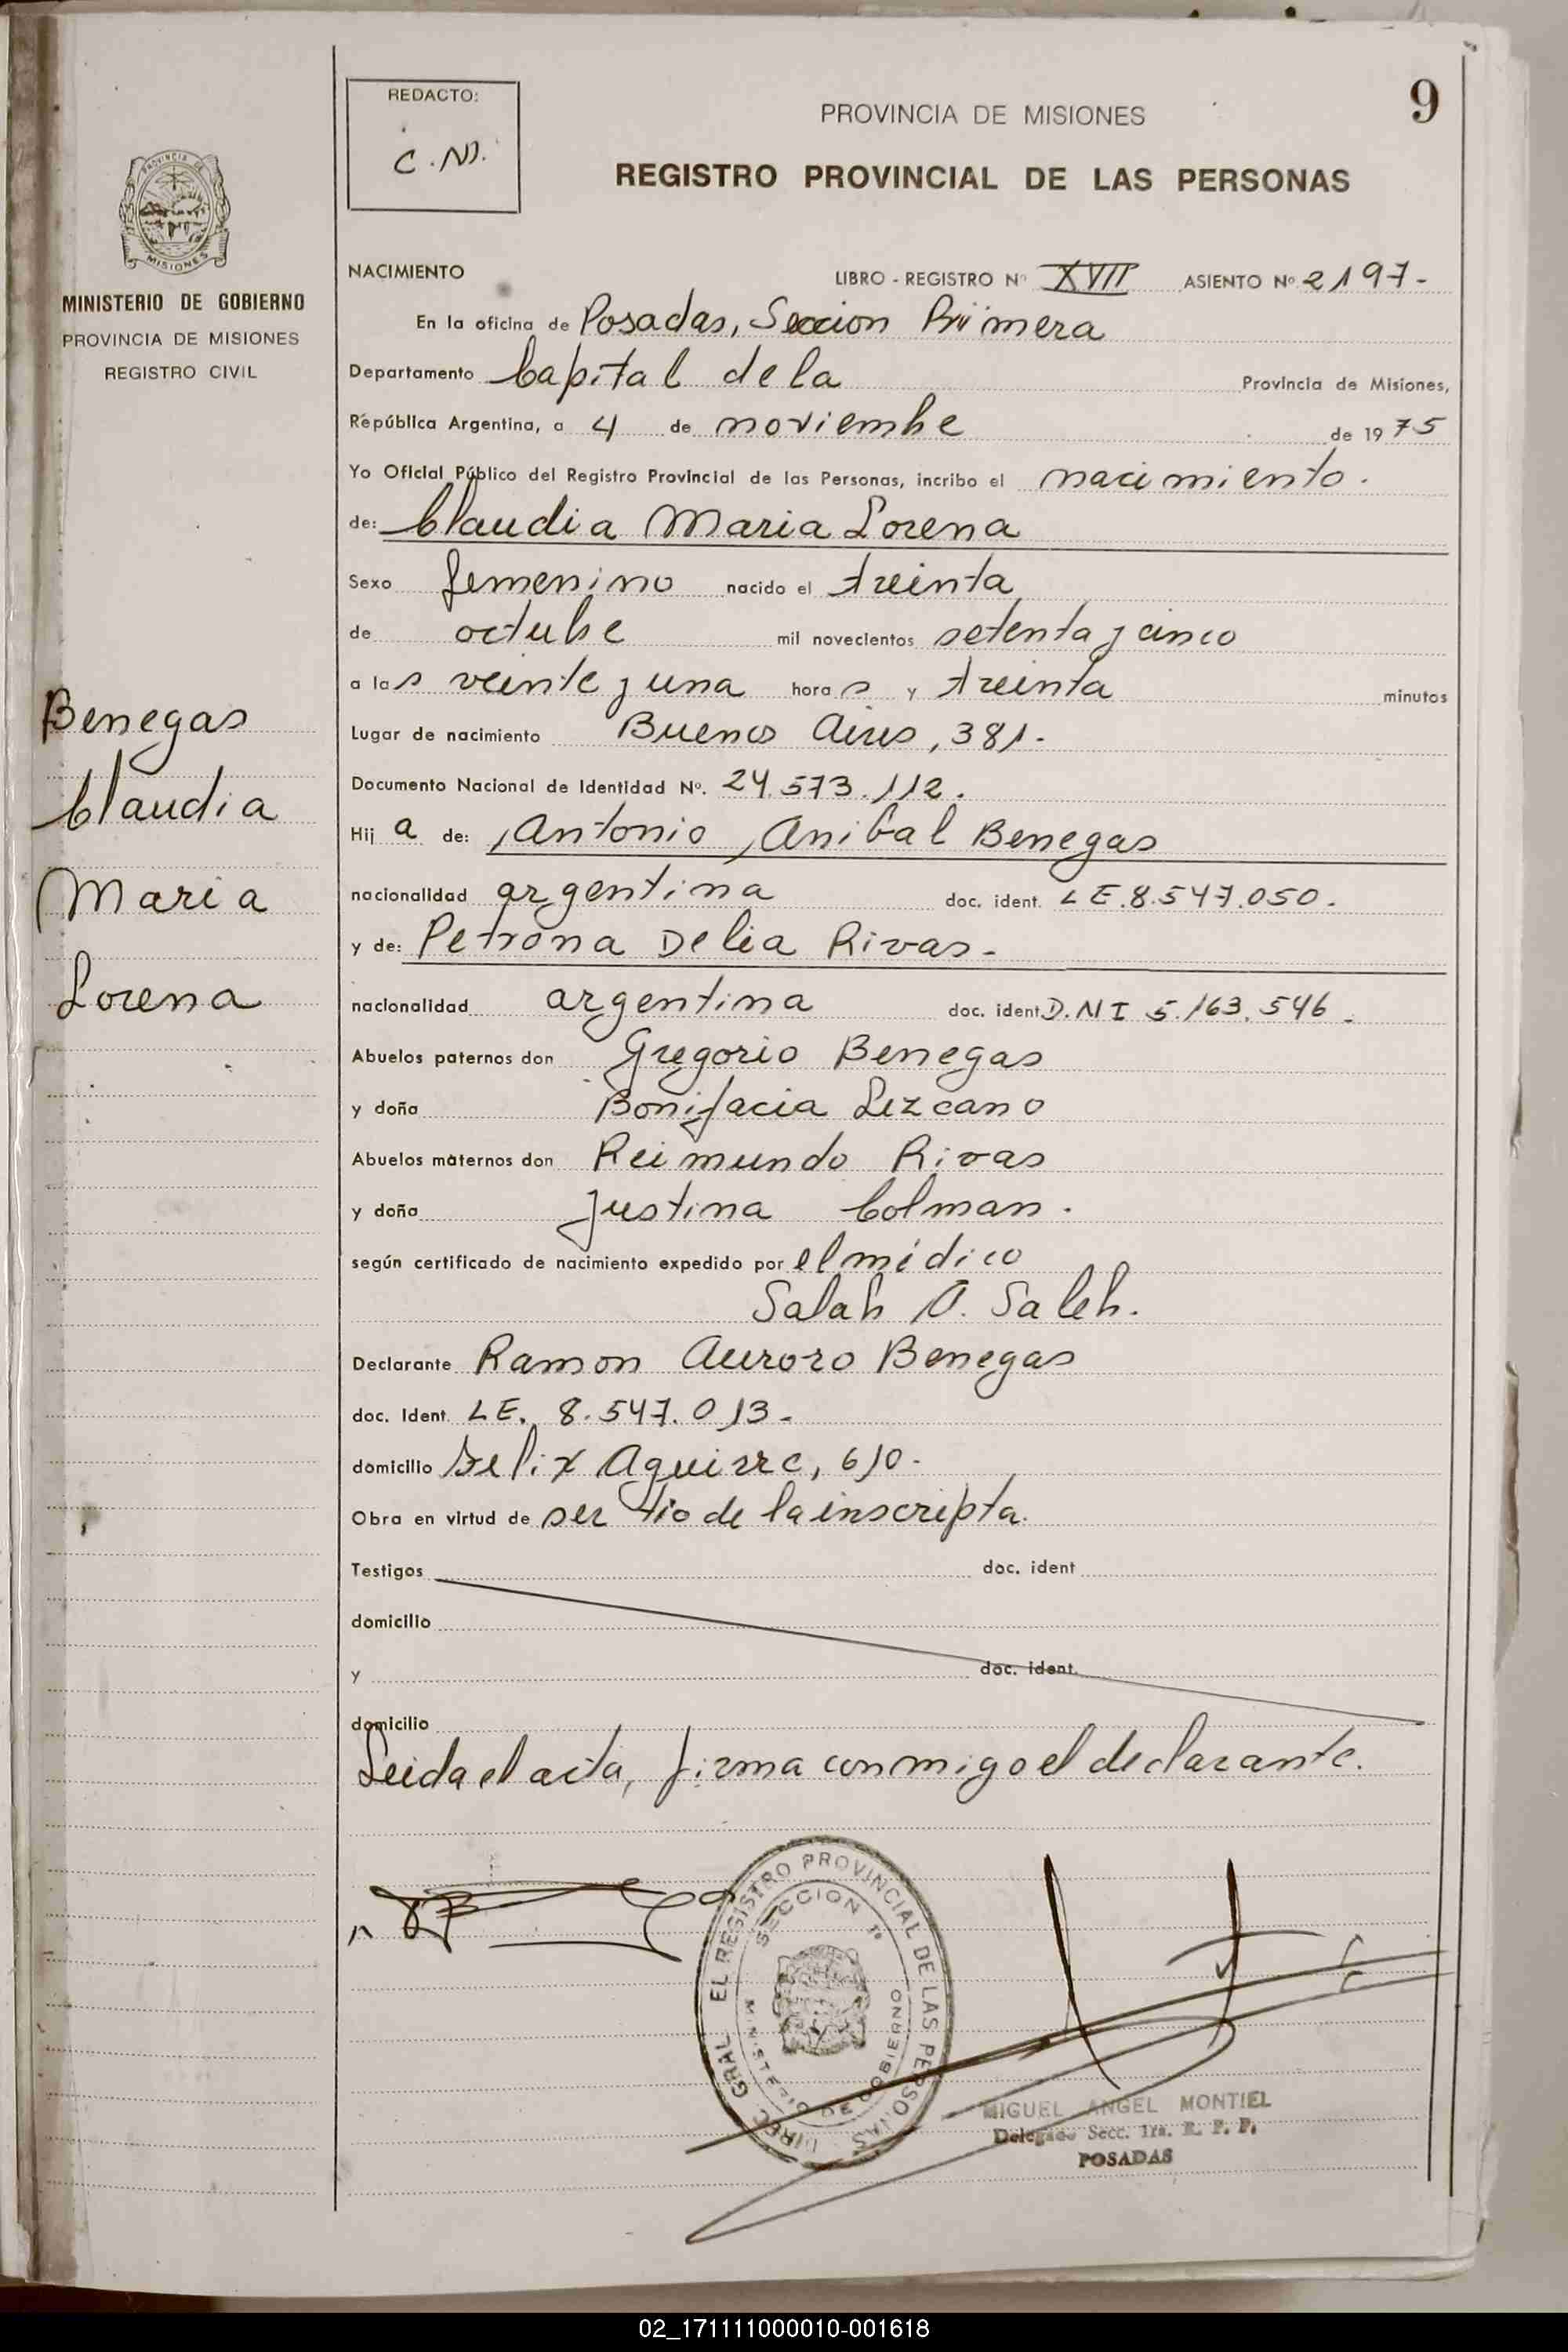 9
REDACTO:
C.N.
PROVINCIA DE MISIONES
REGISTRO PROVINCIAL DE LAS PERSONAS
PROVINCIA DE
MISIONES
MINISTERIO DE GOBIERNO
PROVINCIA DE MISIONES
REGISTRO CIVIL
Benegas
Claudia
Maria
Lorena
NACIMIENTO LIBRO - REGISTRO Nº XVII ASIENTO Nº 2197-
En la oficina de Posadas, Seccion Primera
Departamento Capital de la Provincia de Misiones,
República Argentina, a 4 de noviembre de 1975
Yo Oficial Público del Registro Provincial de las Personas, incribo el nacimiento.
de: Claudia Maria Lorena
Sexo femenino nacido el treinta
de octubre mil novecientos setenta y cinco
a las veinte y una horas y treinta minutos
Lugar de nacimiento Buenos Aires, 381-
Documento Nacional de Identidad Nº. 24.573.112.
Hija de: Antonio Anibal Benegas
nacionalidad argentina doc. ident. LE.8.547.050.
y de: Petrona Delia Rivas-
nacionalidad argentina doc. ident D.N I 5.163.546.
Abuelos paternos don Gregorio Benegas
y doña Bonifacia Lezcano
Abuelos maternos don Reimundo Rivas
y doña Justina Colman.
según certificado de nacimiento expedido por el médico
Salah O. Saleh.
Declarante Ramon Auroro Benegas
doc. Ident. LE. 8.547.013-
domicilio Felix Aguirre, 610-
Obra en virtud de ser tio de la inscripta.
Testigos doc. ident
domicilio
y doc. ident.
domicilio
Leida el acta, firma conmigo el declarante.
DIREC. GRAL. EL REGISTRO PROVINCIAL DE LAS PERSONAS
SECCION 1ª
MINISTERIO DE GOBIERNO
MIGUEL ANGEL MONTIEL
Delegado Secc. 1ra. R. P. P.
POSADAS
02_171111000010-001618